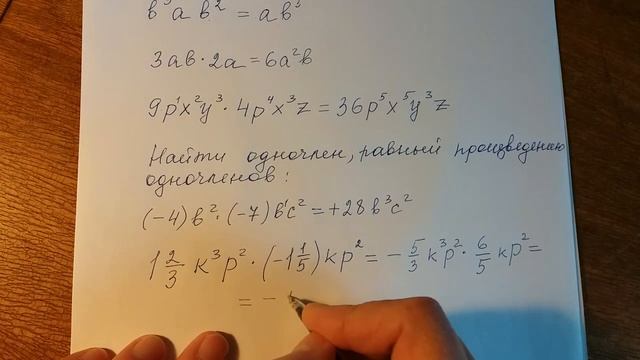 ab² = ab³
3ab · 2a = 6a²b
9p¹x²y³ · 4p⁴x³z = 36p⁵x⁵y³z
Найти одночлен, равный произведению
одночленов:
(-4)b² · (-7)b¹c² = +28b³c²
1 2/3 k³p² · (-1 1/5)kp² = - 5/3 k³p² · 6/5 kp² =
= -